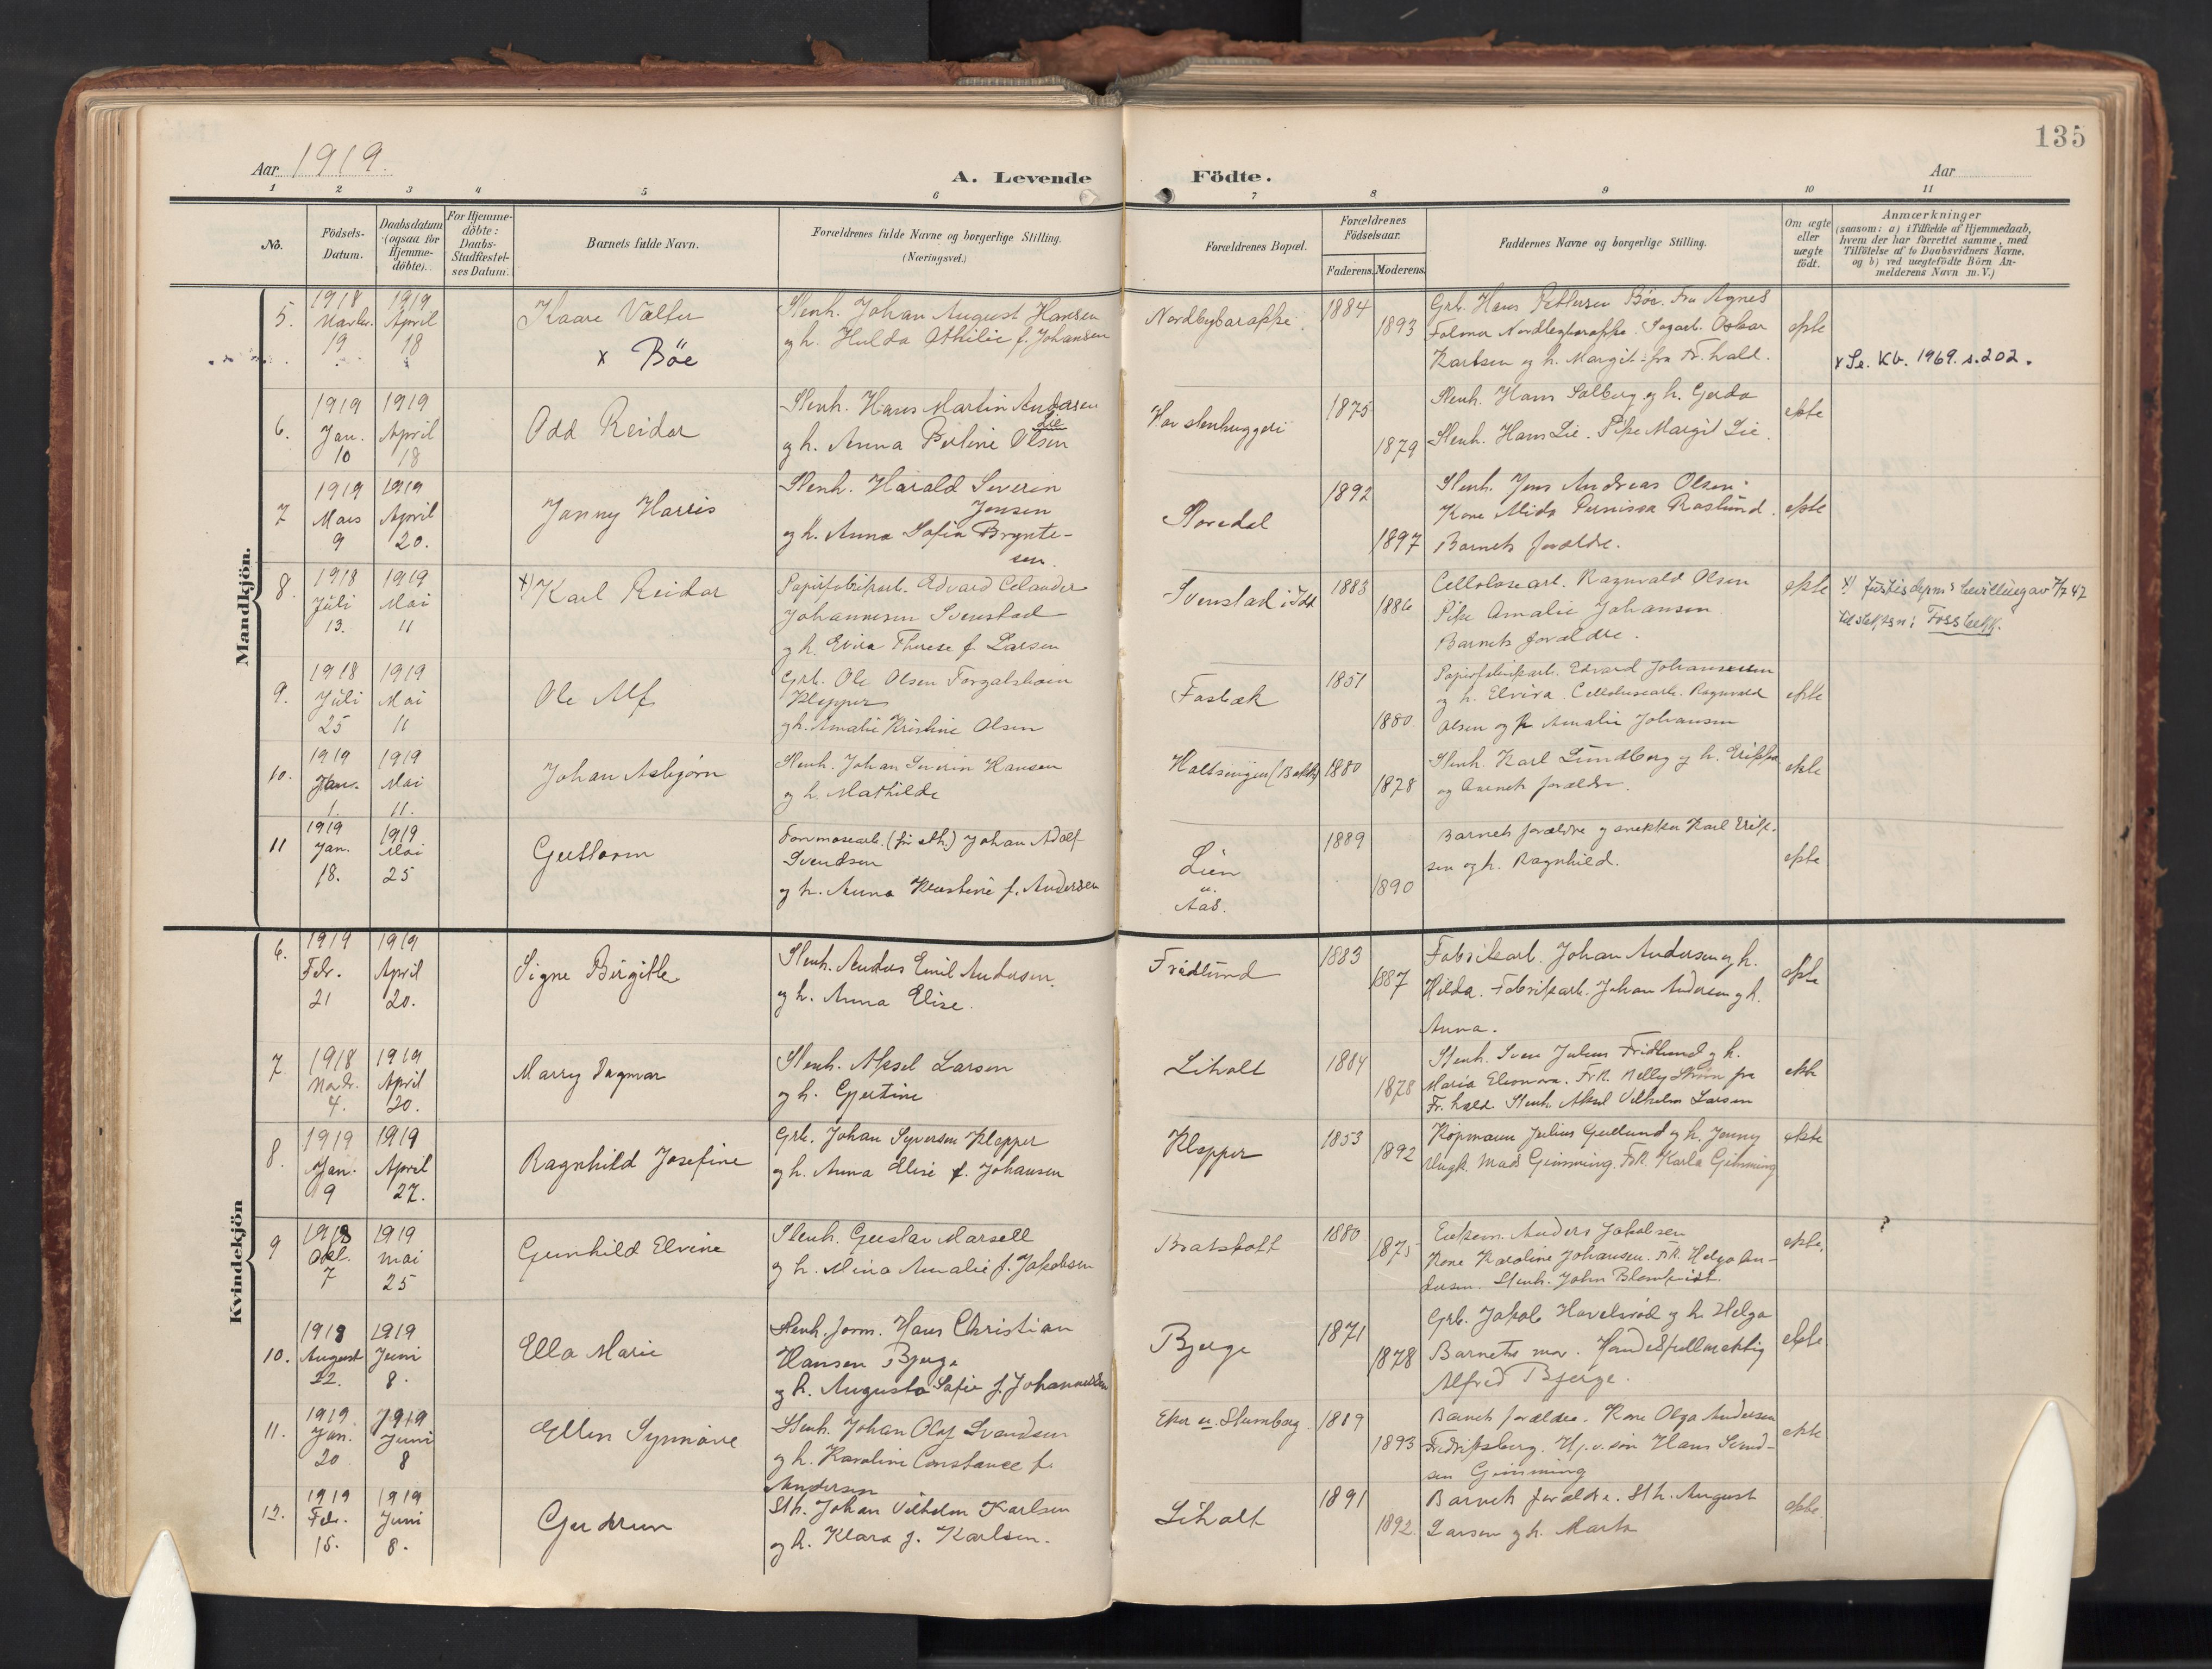 135
Aar 1919.
A. Levende Födte.
Aar
1 2 3 4 5 6 7 8 9 10 11
No.
Födsels-
Datum.
Daabsdatum
(ogsaa for
Hjemme-
döbte).
For Hjemme-
döbte:
Daabs-
Stadfæstel-
ses Datum.
Barnets fulde Navn.
Forældrenes fulde Navne og borgerlige Stilling.
(Næringsvei.)
Forældrenes Bopæl.
Forældrenes
Födselsaar.
Faderens. Moderens.
Faddernes Navne og borgerlige Stilling.
Om ægte
eller
uægte
födt.
Anmærkninger
(saasom: a) i Tilfælde af Hjemmedaab,
hvem der har forrettet samme, med
Tilföielse af to Daabsvidners Navne,
og b) ved uægtefödte Börn An-
melderens Navn m. V.)
Mandkjön.
5.
1918
Novbr.
19
1919
April
18
Kaare Valter
x Böe
Stenh. Johan August Hansen
og h. Hulda Othilie f. Johansen
Nordbybarakke.
1884
1893
Grb. Hans Pettersen Böe. Fru Agnes
Folmer Nordbybarakke. Sagarb. Oskar
Karlsen og h. Margit fra Fr.hald.
ekte
x Se. Kb. 1969. s. 202.
6.
1919
Jan.
10
1919
April
18
Odd Reidar
Stenh. Hans Martin Andersen
Lie
og h. Anna Berline Olsen
Hov stenhuggeri
1875
1879
Stenh. Hans Solberg og h. Gerda
Stenh. Hans Lie. Pike Margit Lie.
ekte
7
1919
Mars
9
1919
April
20.
Janny Harris
Stenh. Harald Severin
Jensen
og h. Anna Sofia Brynte-
sen.
Storedal
1892
1897
Stenh. Jens Andreas Olsen.
Kone Alida Pernissa Roslund.
Barnets forældre.
ekte
8.
1918
Juli
13.
1919
Mai
11
x) Karl Reidar
Papirfabrikarb. Edvard Celander
Johannesen Svenstad
og h. Evira Therese f. Larsen
Svenstad i Idd
1883
1886
Cellolosearb. Ragnvald Olsen
Pike Amalie Johansen
Barnets forældre.
ekte
x) Justisdepms bevilling av 7/7 47
til slektsn: Fossbekk.
9.
1918
Juli
25
1919
Mai
11
Ole Alf
Grb. Ole Olsen Torgalsböen
Klepper
og h. Amalie Kristine Olsen
Fosbæk
1851
1880.
Papirfabrikarb. Edvard Johannesen
og h. Elvira. Cellolosearb. Ragnvald
Olsen og p. Amalie Johansen
ekte
10.
1919
Jan.
1.
1919
Mai
11.
Johan Asbjörn
Stenh. Johan Severin Hansen
og h. Mathilde
1880
1878
Stenh. Karl Lundberg og h. Erikka
og barnets forældre.
ekte
11
1919
Jan.
18.
1919
Mai
25
Guttorm
Torvmosearb. (för sth.) Johan Adolf
Svendsen
og h. Anna Kristine f. Andersen
Lien
u.
Aas.
1889
1890
Barnets forældre og snekker Karl Erik-
sen og h. Ragnhild.
ekte
Kvindekjön
6.
1919
Febr.
21
1919
April
20.
Signe Birgitte
Stenh. Anders Emil Andersen.
og h. Anna Elise.
Fridlund
1883
1887
Fabrikarb. Johan Andersen og h.
Hilda. Fabrikarb. Johan Andersen og h.
Anna.
ekte
7.
1918
Novbr.
4.
1919
April
20.
Marry Dagmar
Stenh. Aksel Larsen
og h. Gjertine
Liholt
1884
1878
Stenh. Sven Julius Fridlund og h.
Maria Eleonora. Frk. Nelly Ström fra
Fr.hald. Stenh. Aksel Vilhelm Larsen
ekte
8.
1919
Jan.
9
1919
April
27.
Ragnhild Josefine
Grb. Johan Syversen Klepper
og h. Anna Elise f. Johansen
Klepper
1853
1892
Köpmann Julius Gullund og h. Jenny
Ungk. Mads Gimming. Frk. Karla Gimming
ekte
9
1918
Okt.
7
1919
mai
25
Gunhild Elvine
Stenh. Gustav Marsell
og h. Mina Amalie f. Jakobsen
Bratskott
1880
1875
Enkem. Anders Jakobsen
Kone Karoline Johansen. Frk. Helga An-
dersen. Stenh. John Blomkvist.
ekte.
?
10.
1918
August
22.
1919
Juni
8.
Ella Marie
Stenh.form. Hans Christian
Hansen Bjerge
og h. Augusta Sofie f. Johannessen
Bjerge
1871
1878
Grb. Jakob Havelsröd og h. Helga
Barnets mor. Handelsfullmektig
Alfred Bjerge.
ekte.
11.
1919.
Jan.
20
1919
Juni
8
Ellen Synnöve
Stenh. Johan Olaf Svendsen
og h. Karoline Constance f.
Andersen
Eker u. Stumberg.
1889
1893
Barnets forældre. Kone Olga Andersen
Fredriksberg. Hj.v. sön Hans Svend-
sen Gimming
ekte
12.
1919
Febr.
15.
1919
Juni
8.
Gudrun
Sth. Johan Vilhelm Karlsen
og h. Klara f. Karlsen.
Liholt
1891
1892.
Barnets forældre. Sth. August
Larsen og h. Marta
ekte.